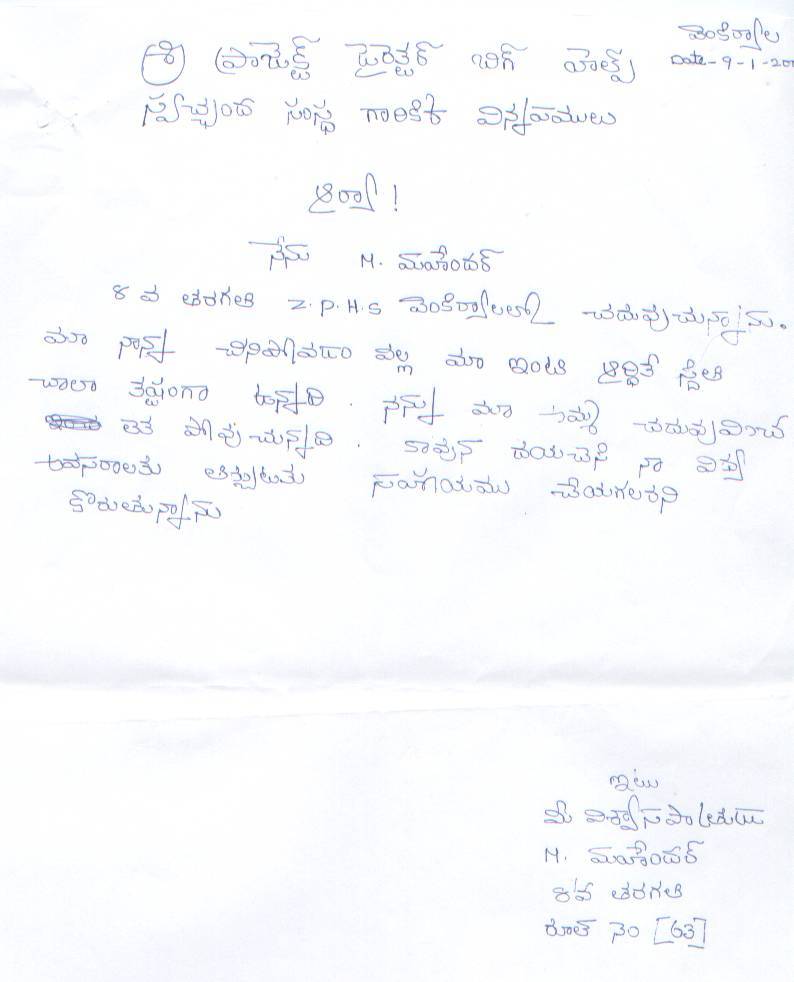 వెంకిర్యాల
Date-9-1-20
శ్రీ ప్రాజెక్ట్ డైరెక్టర్ బిగ్ హెల్ప్
స్వచ్ఛంద సంస్థ గారికి విన్నపములు
ఆర్యా!
నేను M. మహేందర్
8 వ తరగతి Z.P.H.S వెంకిర్యాలలో చదువుచున్నాను.
మా నాన్న చనిపోవడం వల్ల మా ఇంటి ఆర్థిక స్థితి
చాలా కష్టంగా ఉన్నది. నన్ను మా అమ్మ చదువుపించ
లేక పోవుచున్నది. కావున దయచేసి నా విద్య
అవసరాలకు తీర్చుటకు సహాయము చేయగలరని
కోరుతున్నాను
ఇట్లు
మీ విశ్వాసపాత్రుడు
M. మహేందర్
8వ తరగతి
రూల్ నెం [63]